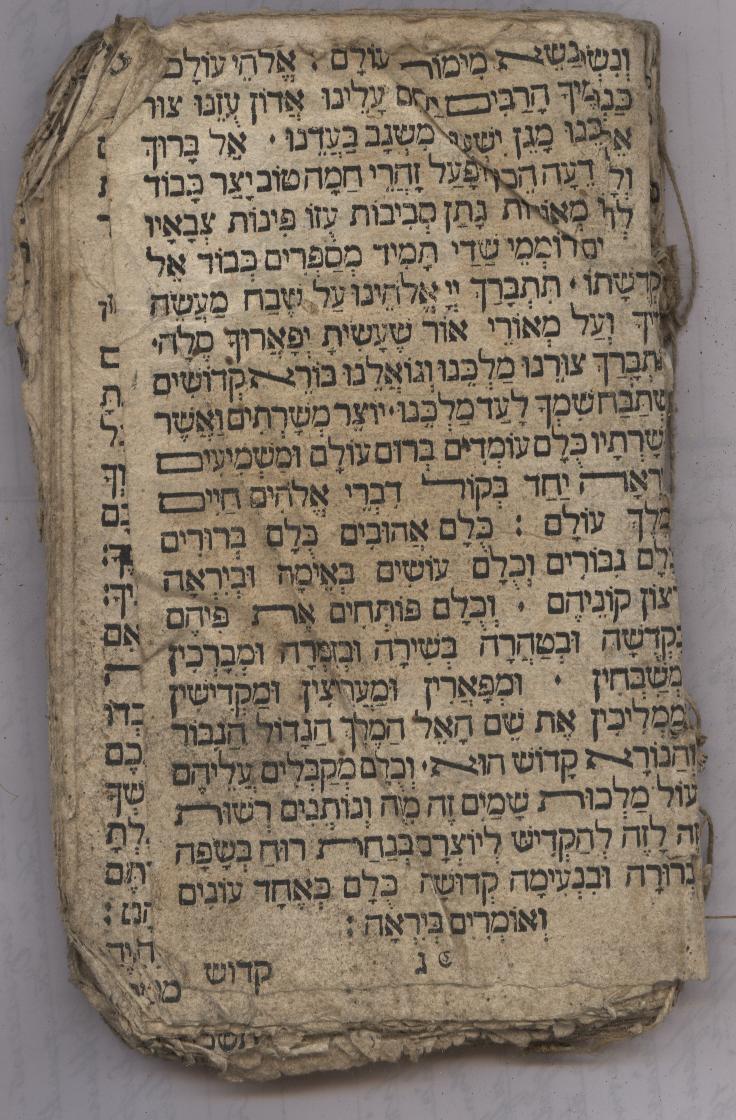 וְנִשָּׂא מִימוֹת עוֹלָם : אֱלֹהֵי עוֹלָם
הָרַבִּים עָלֵינוּ אֲדוֹן עֻזֵּנוּ צוּר
מָגֵן יִשְׁעֵנוּ מִשְׂגָּב בַּעֲדֵנוּ · אֵל בָּרוּךְ
דֵּעָה הֵכִין וּפָעַל זָהֳרֵי חַמָּה טוֹב יָצַר כָּבוֹד
מְאוֹרוֹת נָתַן סְבִיבוֹת עֻזּוֹ פִּינוֹת צְבָאָיו
רוֹמְמֵי שַׁדַּי תָּמִיד מְסַפְּרִים כְּבוֹד אֵל
קְדֻשָּׁתוֹ · תִּתְבָּרַךְ יְיָ אֱלֹהֵינוּ עַל שֶׁבַח מַעֲשֵׂה
וְעַל מְאוֹרֵי אוֹר שֶׁעָשִׂיתָ יְפָאֲרוּךָ סֶּלָה ·
תִּתְבָּרַךְ צוּרֵנוּ מַלְכֵּנוּ וְגוֹאֲלֵנוּ בּוֹרֵא קְדוֹשִׁים
יִשְׁתַּבַּח שִׁמְךָ לָעַד מַלְכֵּנוּ · יוֹצֵר מְשָׁרְתִים וַאֲשֶׁר
מְשָׁרְתָיו כֻּלָּם עוֹמְדִים בְּרוּם עוֹלָם וּמַשְׁמִיעִים
בְּיִרְאָה יַחַד בְּקוֹל דִּבְרֵי אֱלֹהִים חַיִּים
וּמֶלֶךְ עוֹלָם : כֻּלָּם אֲהוּבִים כֻּלָּם בְּרוּרִים
כֻּלָּם גִּבּוֹרִים וְכֻלָּם עוֹשִׂים בְּאֵימָה וּבְיִרְאָה
רְצוֹן קוֹנֵיהֶם · וְכֻלָּם פּוֹתְחִים אֶת פִּיהֶם
בִּקְדֻשָּׁה וּבְטָהֳרָה בְּשִׁירָה וּבְזִמְרָה וּמְבָרְכִין
וּמְשַׁבְּחִין · וּמְפָאֲרִין וּמַעֲרִיצִין וּמַקְדִּישִׁין
וּמַמְלִיכִין אֶת שֵׁם הָאֵל הַמֶּלֶךְ הַגָּדוֹל הַגִּבּוֹר
וְהַנּוֹרָא קָדוֹשׁ הוּא · וְכֻלָּם מְקַבְּלִים עֲלֵיהֶם
עוֹל מַלְכוּת שָׁמַיִם זֶה מִזֶּה וְנוֹתְנִים רְשׁוּת
זֶה לָזֶה לְהַקְדִּישׁ לְיוֹצְרָם בְּנַחַת רוּחַ בְּשָׂפָה
בְרוּרָה וּבִנְעִימָה קְדוֹשָׁה כֻּלָּם כְּאֶחָד עוֹנִים
וְאוֹמְרִים בְּיִרְאָה :
ג
קדוש